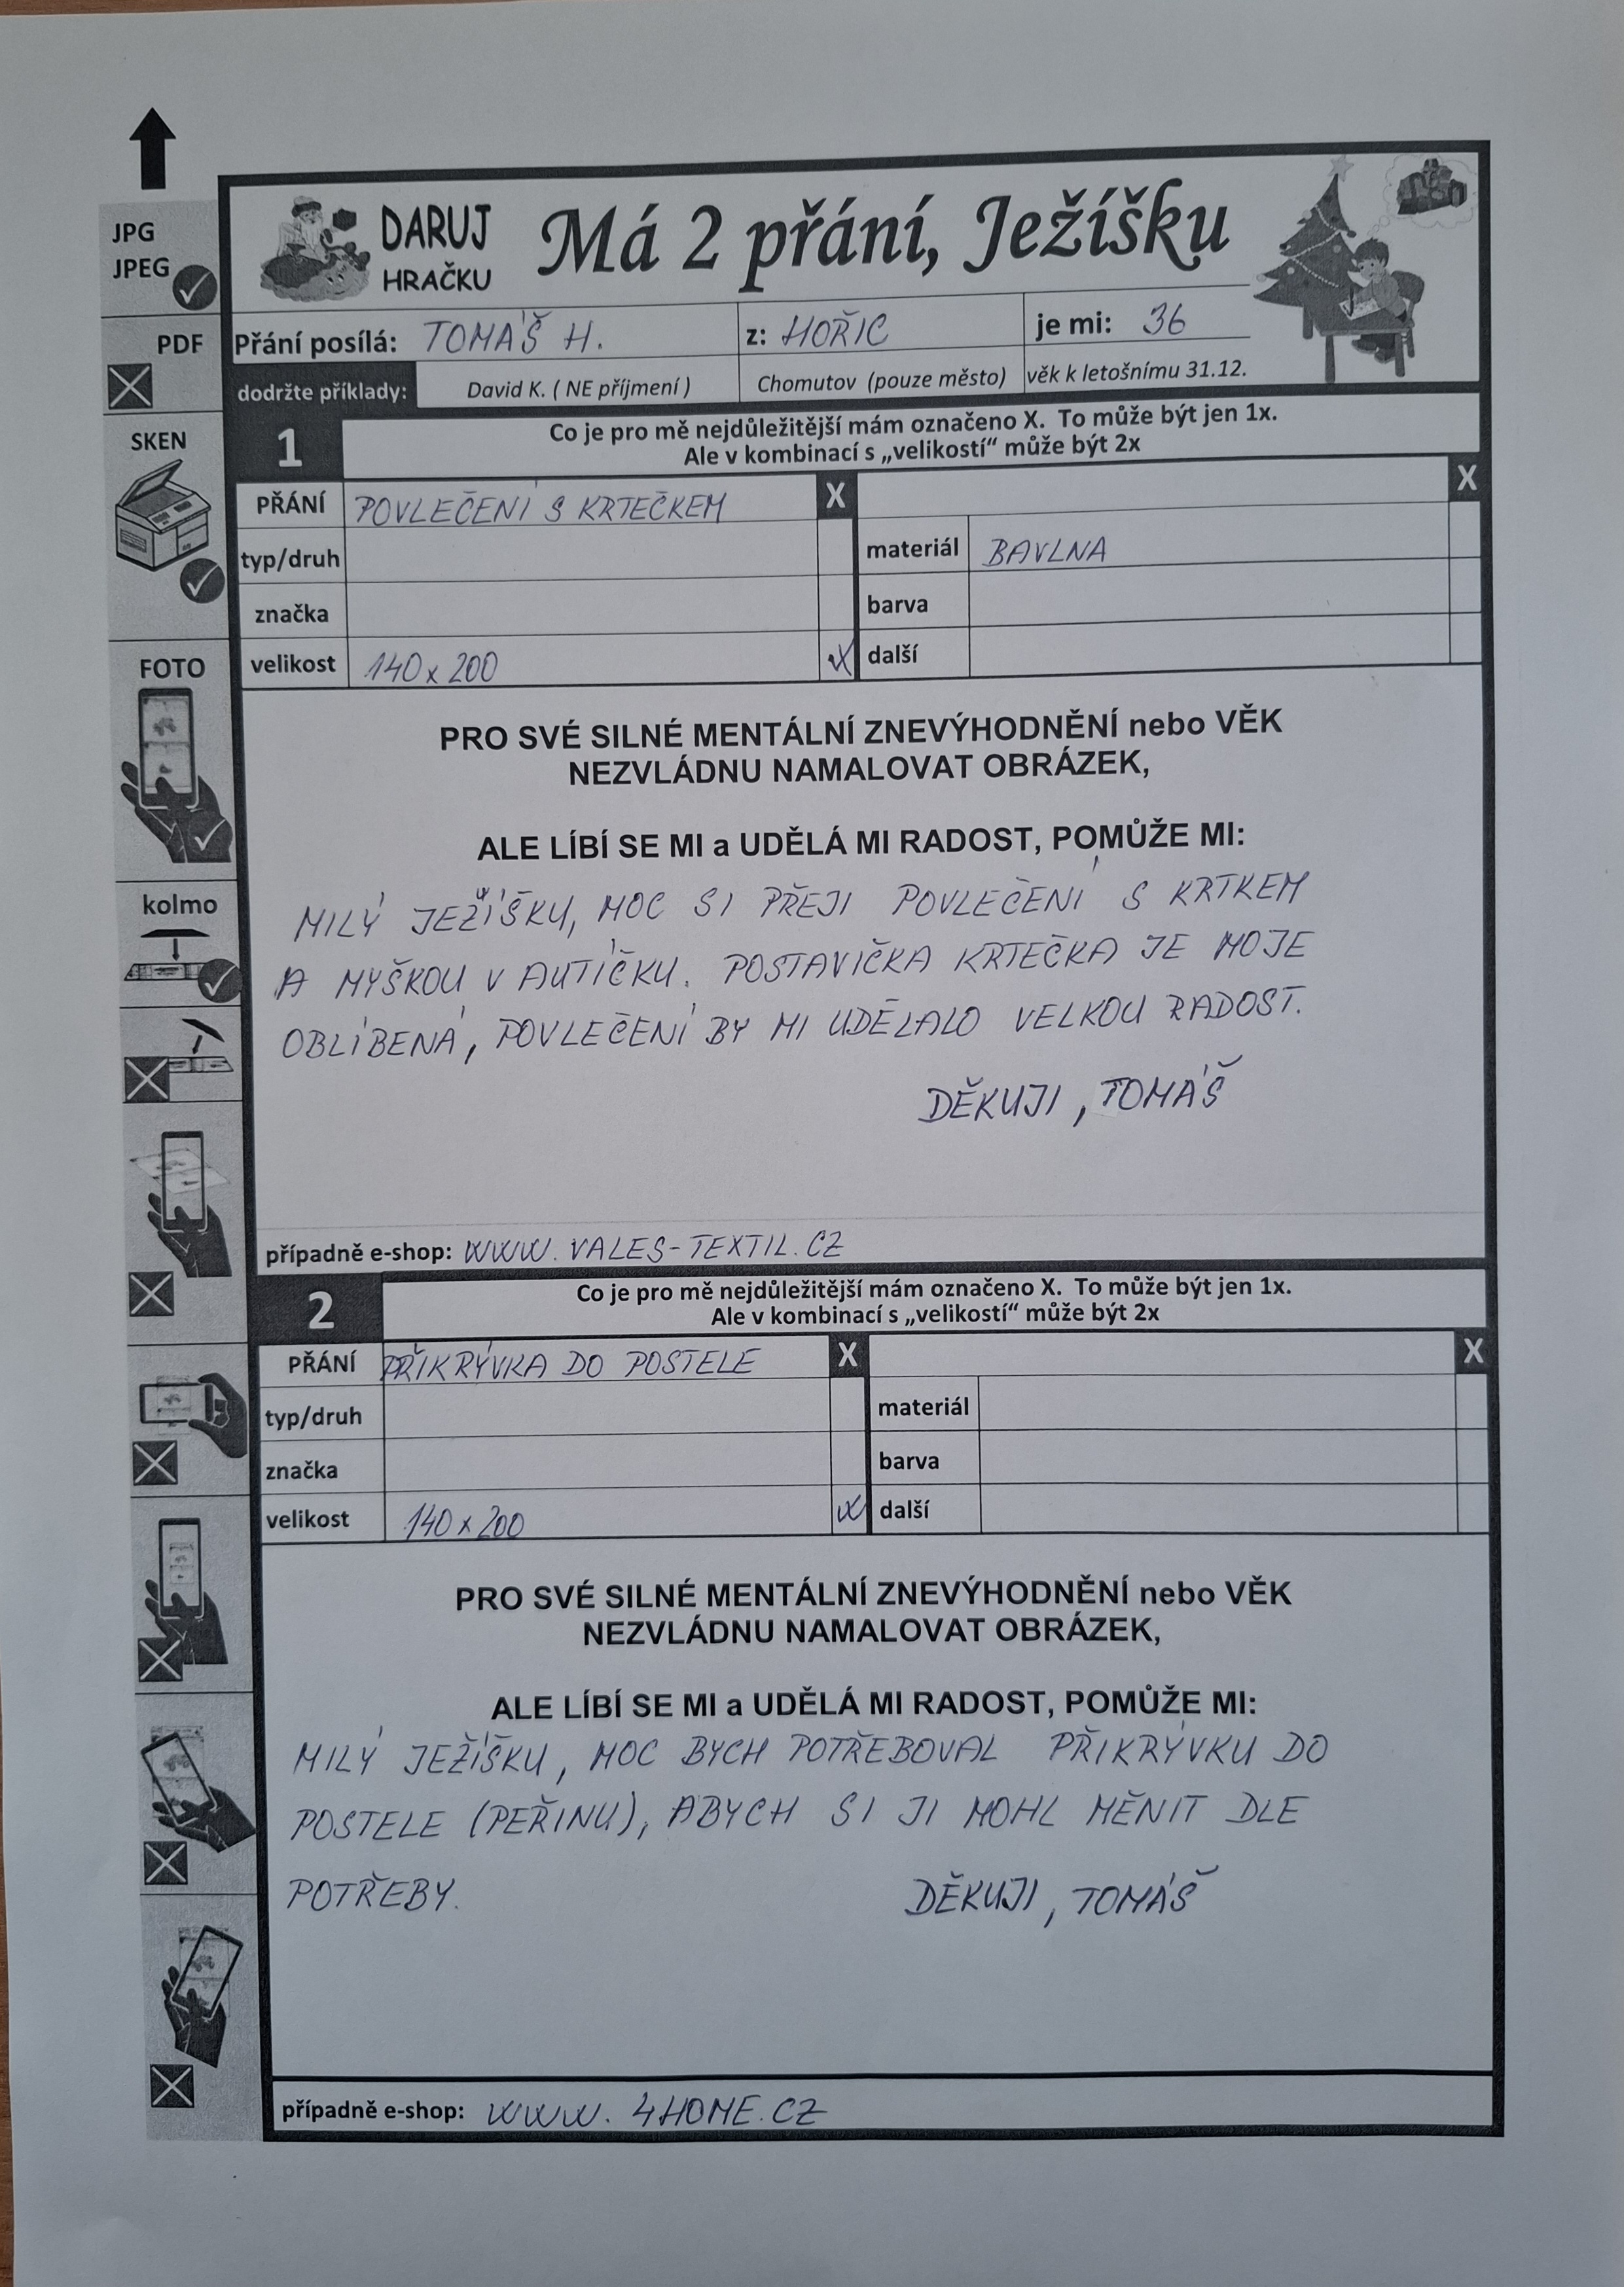 JPG
JPEG
PDF
SKEN
FOTO
kolmo
DARUJ
HRAČKU
Má 2 přání, Ježíšku
Přání posílá: TOMÁŠ H. z: HOŘIC je mi: 36
dodržte příklady: David K. ( NE příjmení ) Chomutov (pouze město) věk k letošnímu 31.12.
1 Co je pro mě nejdůležitější mám označeno X. To může být jen 1x.
Ale v kombinací s „velikostí“ může být 2x
PŘÁNÍ POVLEČENÍ S KRTEČKEM X X
typ/druh materiál BAVLNA
značka barva
velikost 140 x 200 X další
PRO SVÉ SILNÉ MENTÁLNÍ ZNEVÝHODNĚNÍ nebo VĚK
NEZVLÁDNU NAMALOVAT OBRÁZEK,
ALE LÍBÍ SE MI a UDĚLÁ MI RADOST, POMŮŽE MI:
MILÝ JEŽÍŠKU, MOC SI PŘEJI POVLEČENÍ S KRTKEM
A MYŠKOU V AUTÍČKU. POSTAVIČKA KRTEČKA JE MOJE
OBLÍBENÁ, POVLEČENÍ BY MI UDĚLALO VELKOU RADOST.
DĚKUJI, TOMÁŠ
případně e-shop: WWW.VALES-TEXTIL.CZ
2 Co je pro mě nejdůležitější mám označeno X. To může být jen 1x.
Ale v kombinací s „velikostí“ může být 2x
PŘÁNÍ PŘIKRÝVKA DO POSTELE X X
typ/druh materiál
značka barva
velikost 140 x 200 X další
PRO SVÉ SILNÉ MENTÁLNÍ ZNEVÝHODNĚNÍ nebo VĚK
NEZVLÁDNU NAMALOVAT OBRÁZEK,
ALE LÍBÍ SE MI a UDĚLÁ MI RADOST, POMŮŽE MI:
MILÝ JEŽÍŠKU, MOC BYCH POTŘEBOVAL PŘIKRÝVKU DO
POSTELE (PEŘINU), ABYCH SI JI MOHL MĚNIT DLE
POTŘEBY. DĚKUJI, TOMÁŠ
případně e-shop: WWW.4HOME.CZ